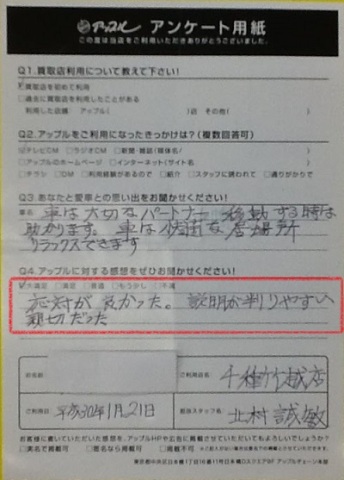 アップル アンケート用紙
この度は当店をご利用いただきありがとうございました。
Q1.買取店利用について教えて下さい!
買取店を初めて利用
過去に買取店を利用したことがある
利用した店舗 アップル( )店 その他( )
Q2.アップルをご利用になったきっかけは?(複数回答可)
テレビCM ラジオCM 新聞・雑誌(媒体名/ )
アップルのホームページ インターネット(サイト名 )
チラシ DM 利用経験があるので 紹介 スタッフに誘われて 通りがかりで
Q3.あなたと愛車との思い出をお聞かせください!
車名
車は大切なパートナー 移動する時は
助かります。車は 居場所
リラックスできます
Q4.アップルに対する感想をぜひお聞かせください!
大満足 満足 普通 もう少し 不満
応対が良かった。説明が判りやすい
親切だった
お名前
ご利用店名 千種竹越店
ご利用日 平成30年1月21日
担当スタッフ名 北村誠敏
お客様に書いていただいた感想を、アップルHPや広告に掲載させていただいてもよろしいでしょうか?
実名で掲載可 匿名なら掲載可 掲載不可